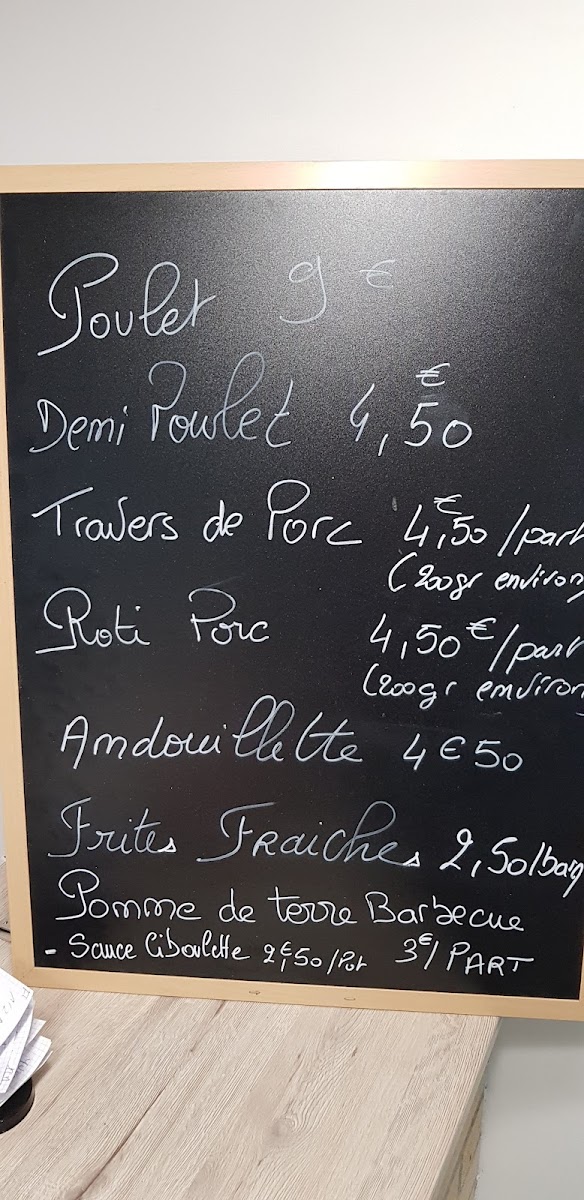 Poulet 9 €
Demi Poulet 4,50 €
Travers de Porc 4,50 € /part
(200gr environ
Roti Porc 4,50 € /part
(200gr environ
Andouillette 4 € 50
Frites Fraiches 2,50/barq
Pomme de terre Barbecue
- Sauce Ciboulette 2€,50/Pot 3€/PART